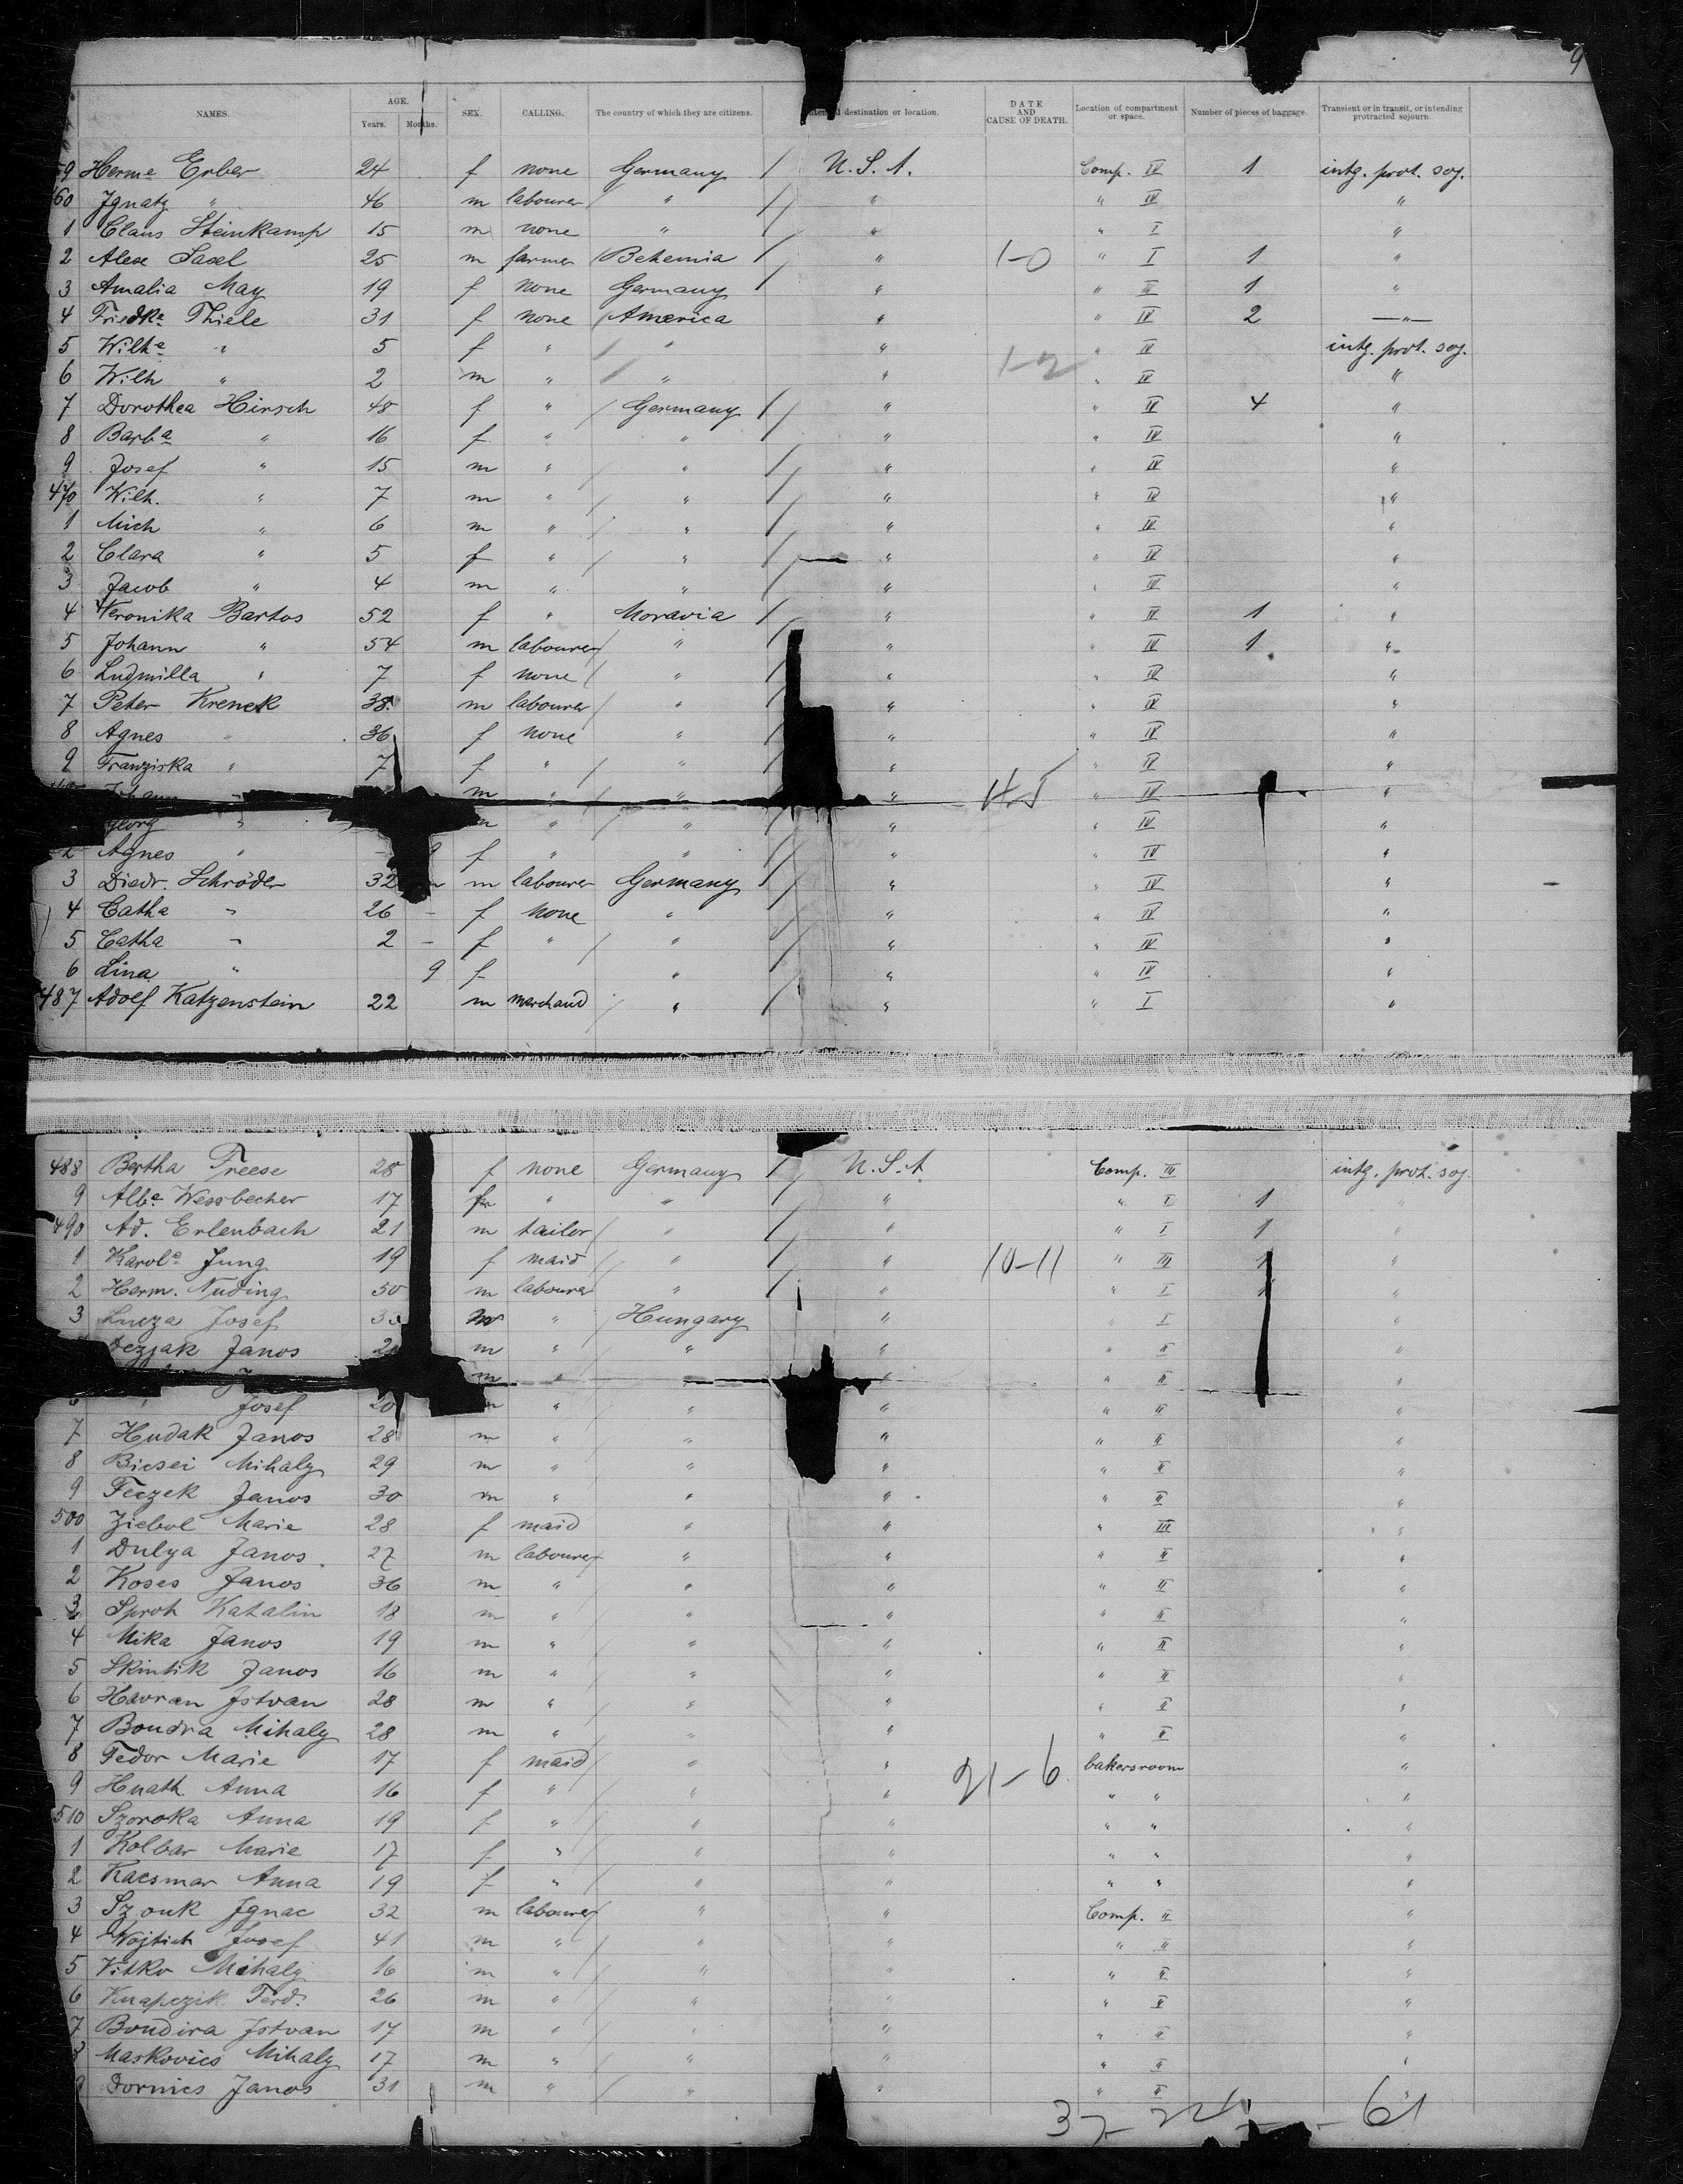 9
NAMES. AGE. Years. Months. SEX. CALLING. The country of which they are citizens. destination or location. DATE AND CAUSE OF DEATH. Location of compartment or space. Number of pieces of baggage. Transient or in transit, or intending protracted sojourn.
59 Herme Erber 24 f none Germany / U.S.A. Comp. IV 1 intg. prot. soj.
460 Ignatz " 46 m labourer " " " IV "
1 Claus Steinkamp 15 m none " " " I "
2 Alexe Saxel 25 m farmer Bohemia " 1-0 " I 1 "
3 Amalia May 19 f none Germany " " II 1 "
4 Friedke Thiele 31 f none America " " IV 2 "
5 Wilhe " 5 f " " " " IV intg. prot. soj.
6 Wilh " 2 m " " " 1-2 " IV "
7 Dorothea Hirsch 48 f " Germany " " IV 4 "
8 Barba " 16 f " " " " IV "
9 Josef " 15 m " " " " IV "
470 Wilh. " 7 m " " " " IV "
1 Mich " 6 m " " " " IV "
2 Clara " 5 f " " " " IV "
3 Jacob " 4 m " " " " IV "
4 Veronika Bartos 52 f " Moravia " " IV 1 "
5 Johann " 54 m labourer " " " IV 1 "
6 Ludmilla " 7 f none " " " IV "
7 Peter Krenek 38 m labourer " " " IV "
8 Agnes " 36 f none " " " IV "
9 Franziska " 7 f " " " " IV "
Johann " m " " " 14-5 " IV "
Georg " m " " " " IV "
2 Agnes " 9 f " " " " IV "
3 Diedr. Schröder 32 m labourer Germany " " IV "
4 Catha " 26 - f none " " " IV "
5 Catha " 2 - f " " " " IV "
6 Lina " 9 f " " " IV "
487 Adolf Katzenstein 22 m merchand " " " I "
488 Bertha Treese 28 f none Germany / U.S.A Comp. III intg. prot. soj.
9 Albe Wessbecher 17 m " " " " I 1 "
490 Ad. Erlenbach 21 m tailor " " " I 1 "
1 Karole Jung 19 f maid " " 10-11 " III 1 "
2 Herm. Nuding 50 m labourer " " " I 1 "
3 Lucza Josef m " Hungary " " I "
Dezjak Janos m " " " " II "
m " " " " II "
6 Josef 20 m " " " " II "
7 Hudak Janos 28 m " " " " II "
8 Bicsei Mihaly 29 m " " " " II "
9 Feczek Janos 30 m " " " " II "
500 Ziebol Marie 28 f maid " " " III "
1 Dulya Janos 27 m labourer " " " II "
2 Koses Janos 36 m " " " " II "
3 Sproh Katalin 18 m " " " " II "
4 Mika Janos 19 m " " " " II "
5 Skintik Janos 16 m " " " " II "
6 Havran Istvan 28 m " " " " II "
7 Boudra Mihaly 28 m " " " " II "
8 Fedor Marie 17 f maid " " 21-6 bakersroom "
9 Huath Anna 16 f " " " " " "
510 Szoroka Anna 19 f " " " " " "
1 Kolbar Marie 17 f " " " " " "
2 Kacsmar Anna 19 f " " " " " "
3 Szouk Ignac 32 m labourer " " Comp. II "
4 Wojtich Josef 41 m " " " " II "
5 Vitko Mihaly 16 m " " " " II "
6 Knapczik Ferd. 26 m " " " " II "
7 Boudira Istvan 17 m " " " " II "
8 Maskovics Mihaly 17 m " " " " II "
9 Dornics Janos 31 m " " " " II "
37- 61